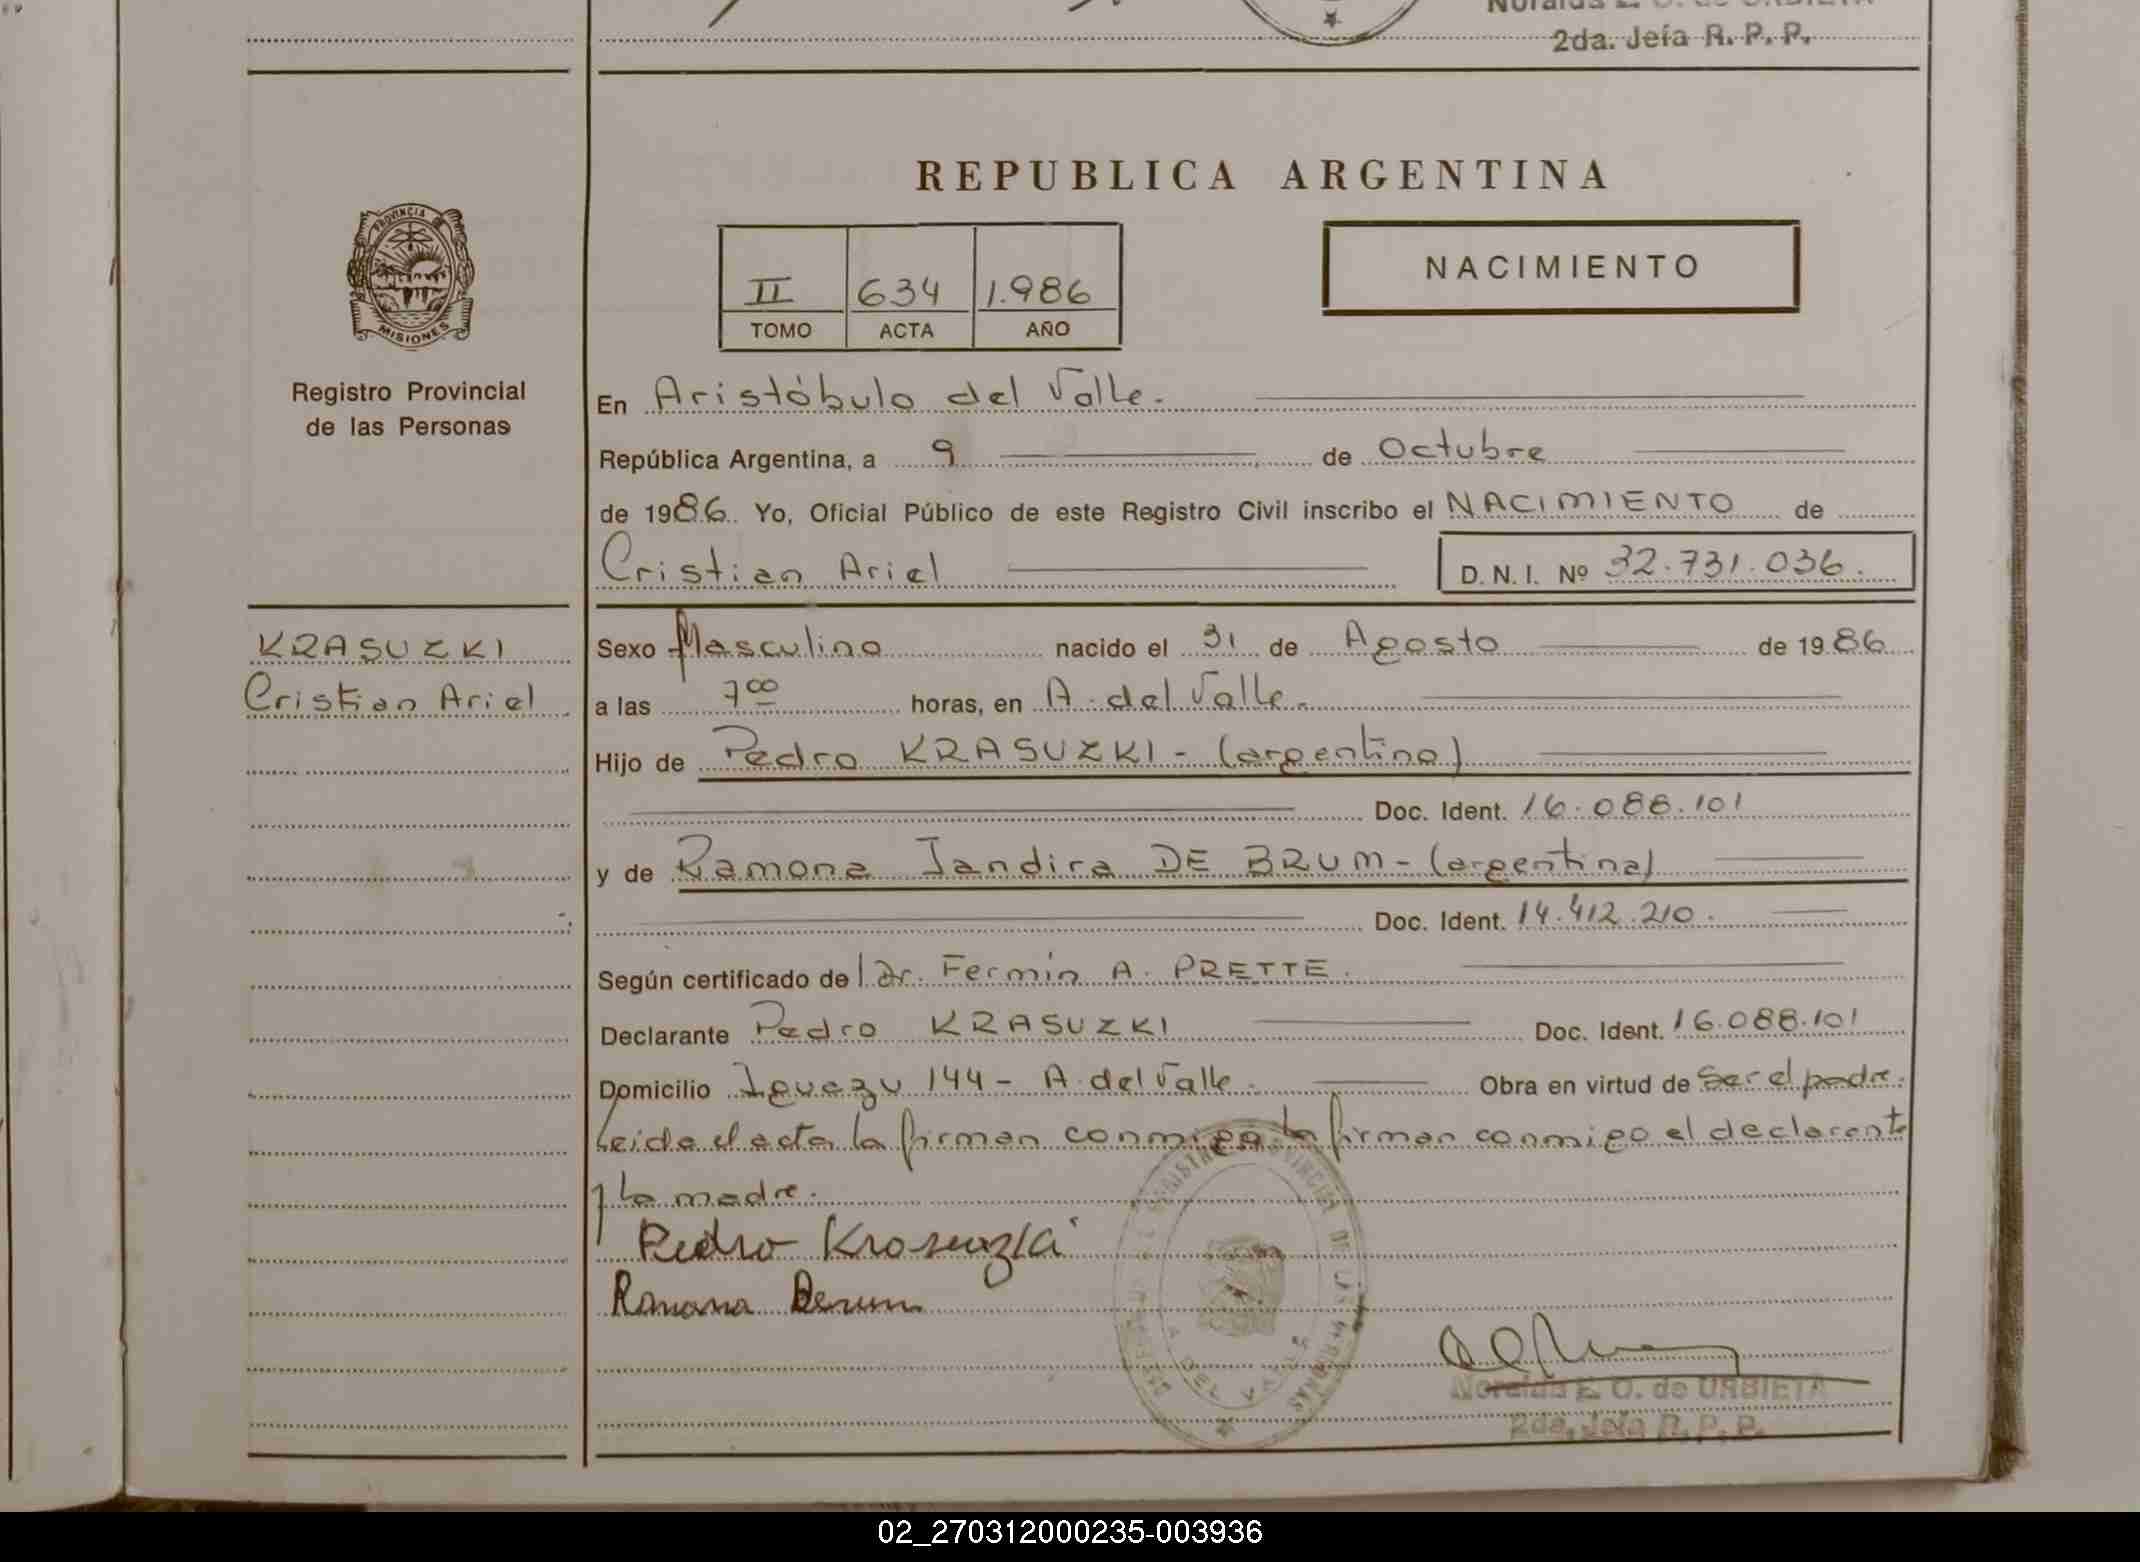 2da. Jefa R. P. P.
REPUBLICA ARGENTINA
PROVINCIA DE
MISIONES
Registro Provincial
de las Personas
NACIMIENTO
II 634 1.986
TOMO ACTA AÑO
En Aristóbulo del Valle.
República Argentina, a 9 de Octubre
de 1986. Yo, Oficial Público de este Registro Civil inscribo el NACIMIENTO de
Cristian Ariel D.N.I. Nº 32.731.036.
KRASUZKI
Cristian Ariel
Sexo Masculino nacido el 31 de Agosto de 1986
a las 7 00 horas, en A. del Valle.
Hijo de Pedro KRASUZKI - (argentino)
Doc. Ident. 16.088.101
y de Ramona Jandira DE BRUM - (argentina)
Doc. Ident. 14.412.210.
Según certificado de Dr. Fermín A. PRETTE.
Declarante Pedro KRASUZKI Doc. Ident. 16.088.101
Domicilio Iguazu 144 - A. del Valle. Obra en virtud de Ser el padre.
Leida el acta la firman conmigo la firman conmigo el declarante
y la madre.
Pedro Krasuzki
Ramona Berum
Noralda E. O. de URBIETA
2da. Jefa R. P. P.
02_270312000235-003936